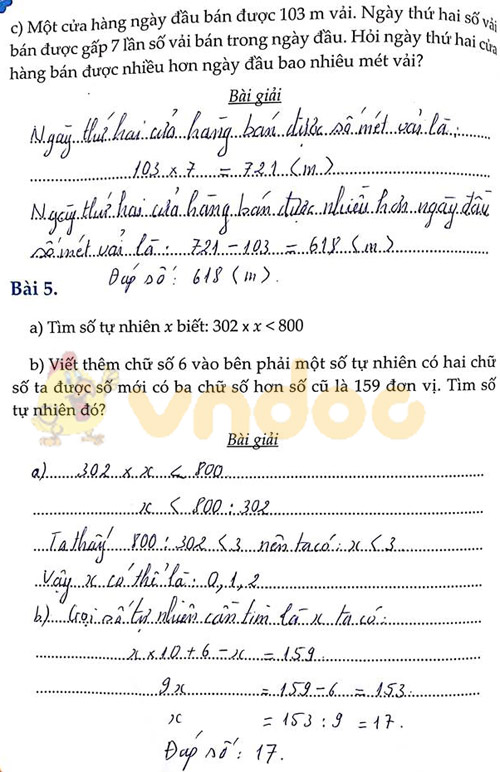 c) Một cửa hàng ngày đầu bán được 103 m vải. Ngày thứ hai số vải
bán được gấp 7 lần số vải bán trong ngày đầu. Hỏi ngày thứ hai cửa
hàng bán được nhiều hơn ngày đầu bao nhiêu mét vải?
Bài giải
Ngày thứ hai cửa hàng bán được số mét vải là:
103 x 7 = 721 (m)
Ngày thứ hai cửa hàng bán được nhiều hơn ngày đầu
số mét vải là: 721 - 103 = 618 (m)
Đáp số: 618 (m).
Bài 5.
a) Tìm số tự nhiên x biết: 302 × x < 800
b) Viết thêm chữ số 6 vào bên phải một số tự nhiên có hai chữ
số ta được số mới có ba chữ số hơn số cũ là 159 đơn vị. Tìm số
tự nhiên đó?
vndoc
Bài giải
a) 302 x x < 800
x < 800 : 302
Ta thấy 800 : 302 < 3 nên ta có: x < 3
Vậy x có thể là: 0, 1, 2
b) Gọi số tự nhiên cần tìm là x ta có:
x x 10 + 6 - x = 159
9x = 159 - 6 = 153
x = 153 : 9 = 17.
Đáp số: 17.